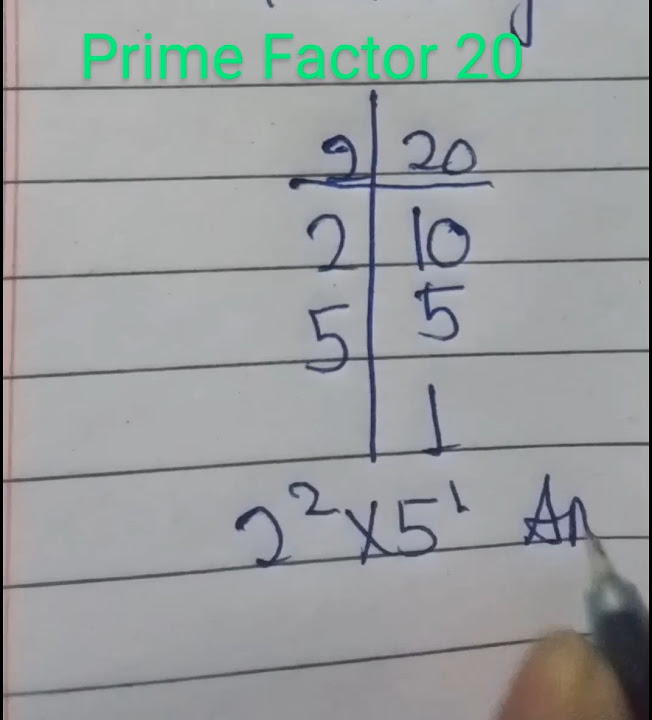 Prime Factor 20
2 | 20
2 | 10
5 | 5
1
2² × 5¹ An